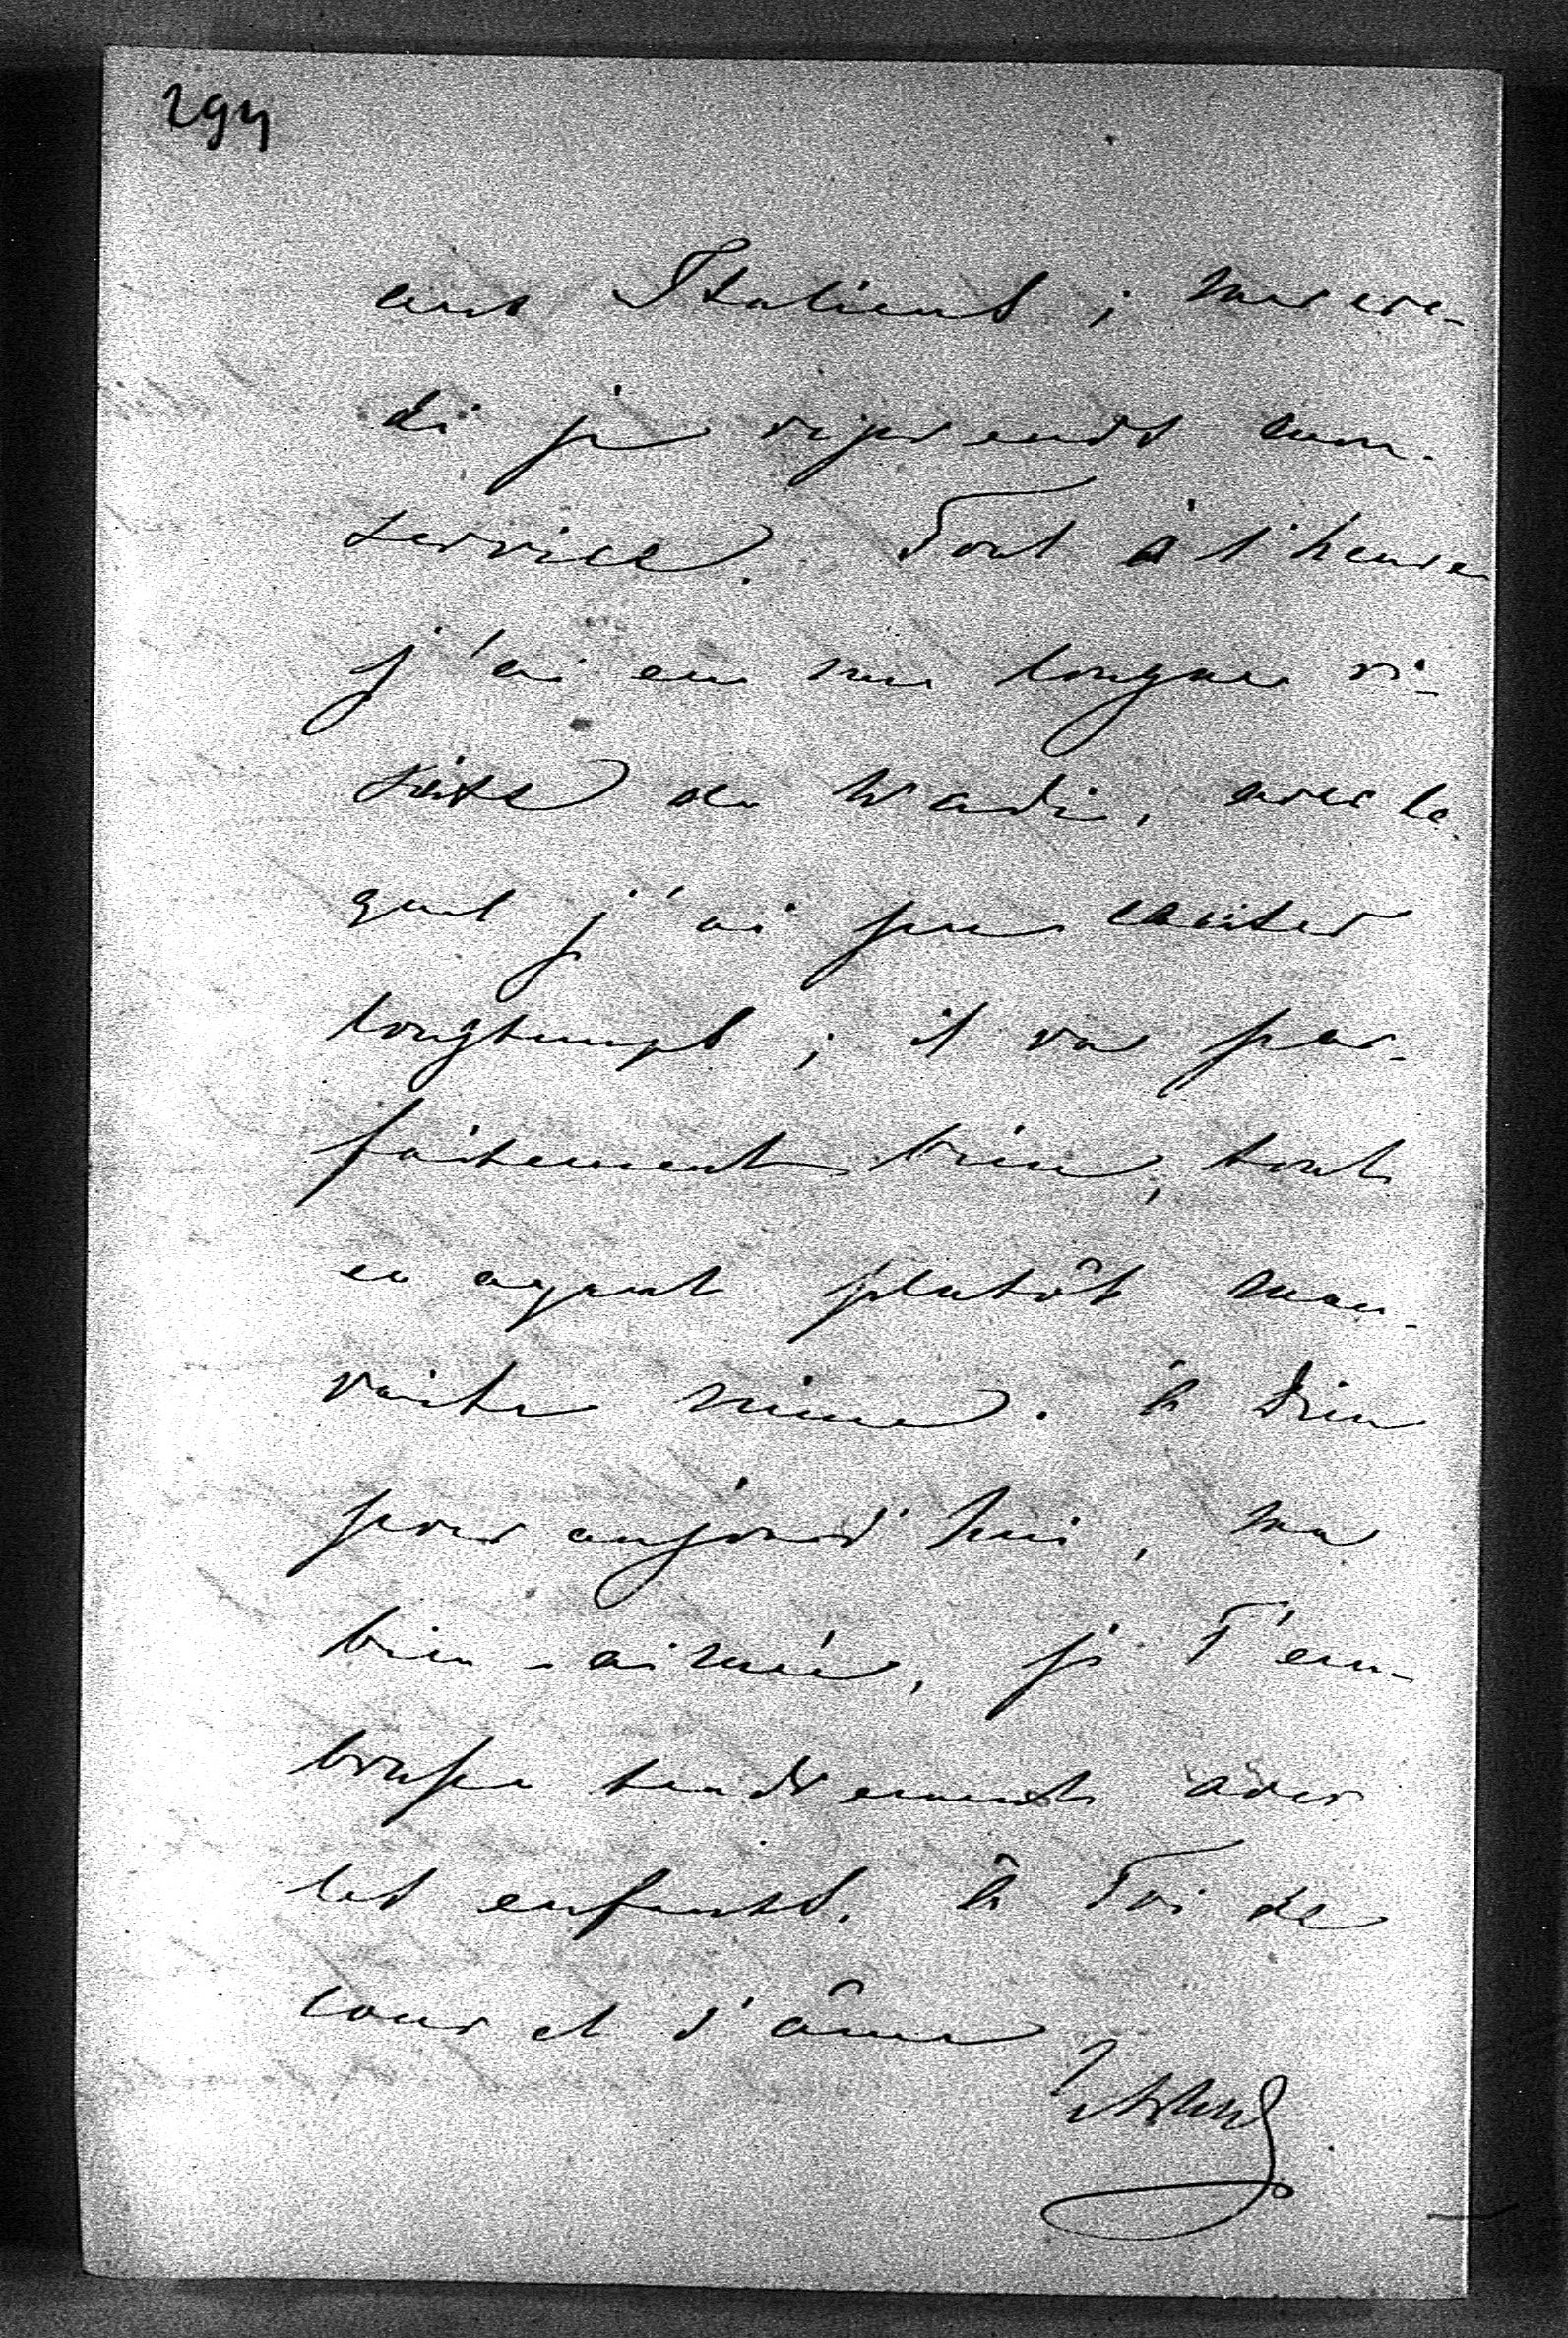 294
aux Italiens ; mercre-
di je reprends mon
service. Tout à l'heure
j'ai eu une longue vi-
site de Wadi, avec le-
quel j'ai pu causer
longtemps ; il va par-
faitement bien, tout
en ayant plutôt mau-
vaise mine. à Dieu
pour aujourd'hui, ma
bien-aimée, je T'em-
brasse tendrement avec
les enfants. à Toi de
cœur et d'âme